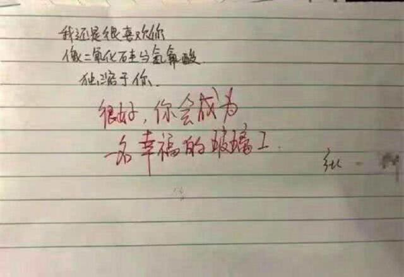 我还是很喜欢你
像二氧化硅与氢氟酸
独溶于你
很好，你会成为
一名幸福的玻璃工.